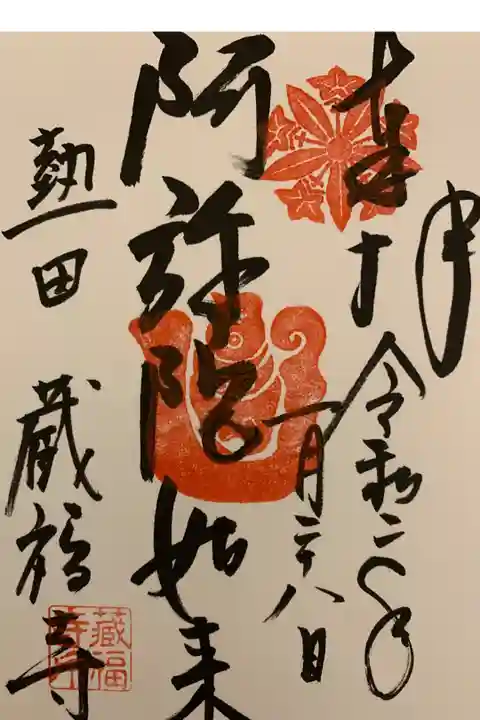 奉拝
令和二年
一月二十八日
阿弥陀如来
熱田 蔵福寺
蔵福寺印